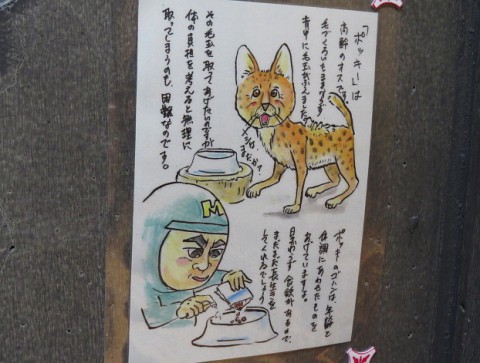 「ポッキー」は
高齢のオスです。
毛づくろいもままならず
背中に毛玉がふえました。
その毛玉を取ってあげたいのですが
体の負担を考えると無理に
取ってしまうのも、困難なのです。
メシは
まだか?
ポッキーのゴハンは、年齢と
体調にあわせたものを
あげていますよ。
日かわらず食欲があるので、
まだまだ長生きを
してくれるでしょう
M